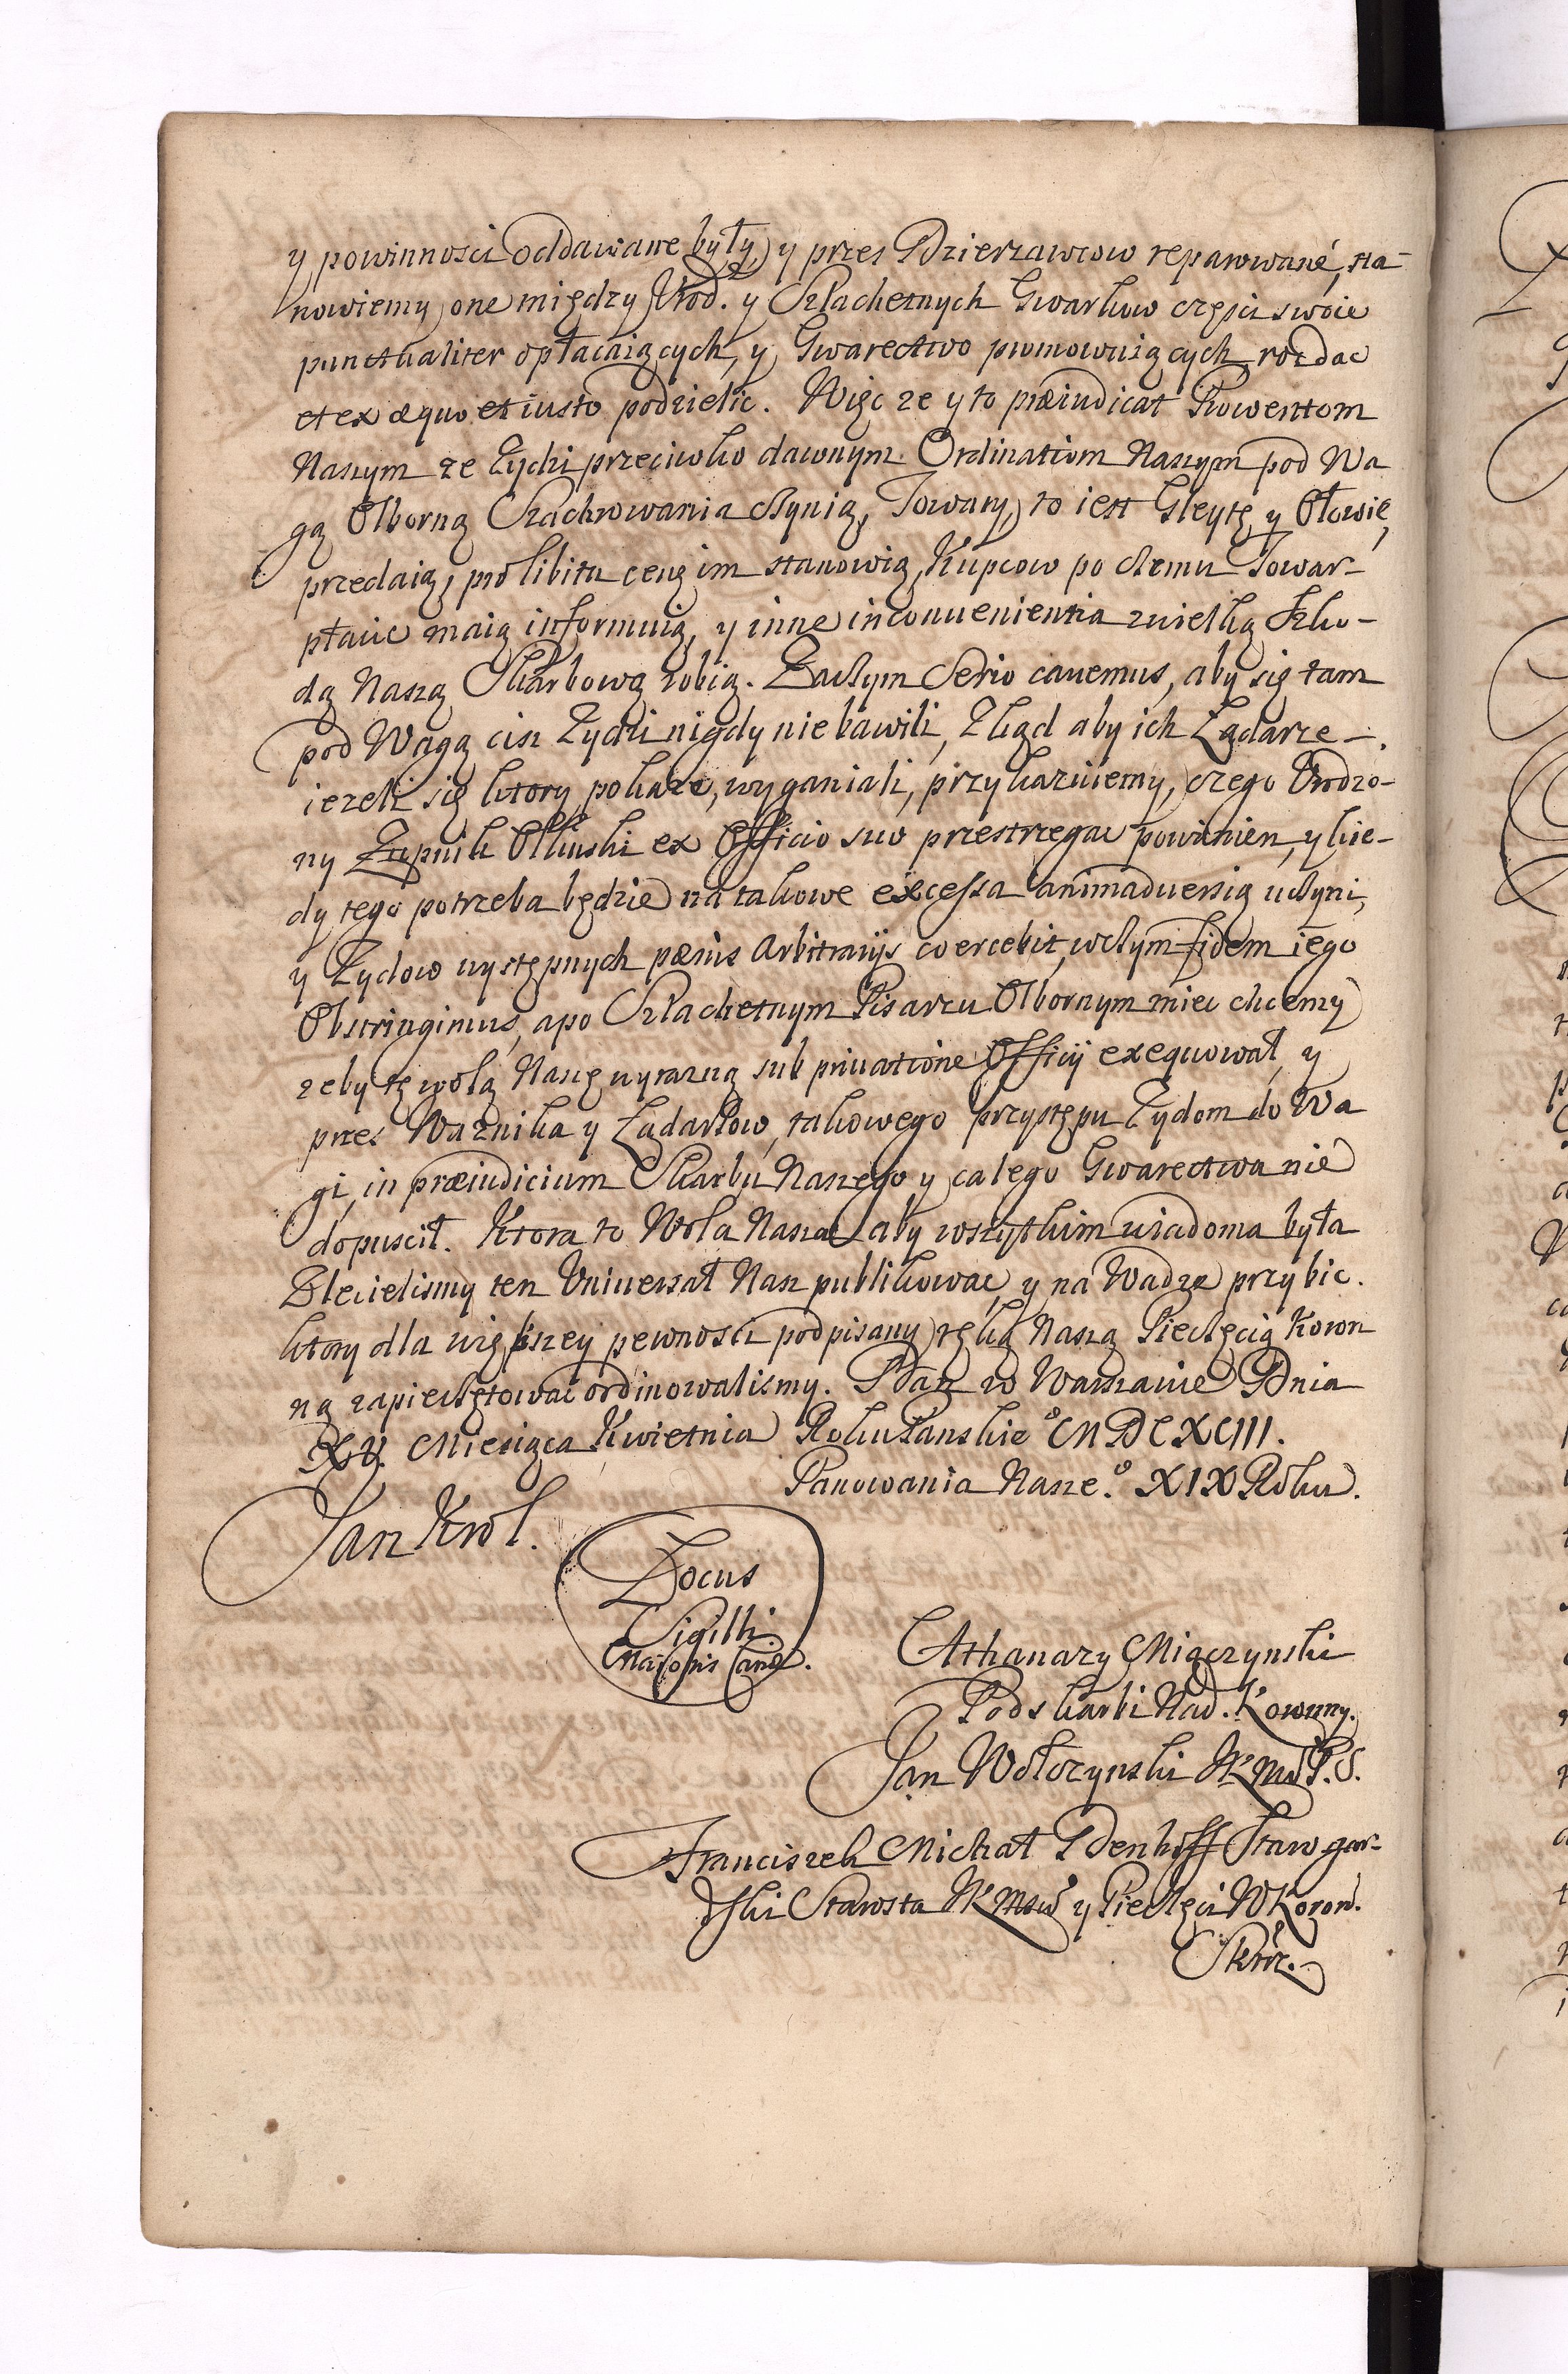 y powinnosci oddawane były, y przes Dzierzawcow reparowané, sta-
nowiemy one między Urod. y Szlachetnych Gwarkow częsci swoie
punctualiter opłacaiących, y Gwarectwo promowuiących rozdac
et ex æquo et iusto podzielic. Więc ze y to præiudicat Prowentom
Naszym ze Zydzi przeciwko dawnym Ordinatiom Naszym pod Wa
gą Olborną Szachrowania czynią, Towary, to iest Gleytę y Ołowie,
przedaią, pro libitu cenę im stanowią, Kupcow po czemu Towar
płacic maią informuią, y inne inconuenientia zwielką Szko-
dą Naszą Skarbową robią. Zaczym Serio cauemus, aby się tam
pod Wagą cisz Zydzi nigdy nie bawili, Zkąd aby ich Ządarze
iezeli się ktory pokaze, wyganiali, przykazuiemy, czego Urodzo-
ny Zupnik Olkuski ex Officio suo przestrzegac powinien, y kie-
dy tego potrzeba będzie na takowe excessa animaduersią uczyni,
y Zydow występnych pœnis Arbitrarijs coercebit, wczym fidem iego
Obstringimus, apo Szlachetnym Pisarzu Olbornym miec chcemy
zeby tę wolą Naszę wyrazną sub priuatione Officij exequował, y
przes Waznika y Ządarzow, takowego przystępu Zydom do Wa
gi, in præiudicium Skarbu Naszego y całego Gwarectwa nie
dopuscił. Ktora to Wola Nasza aby wszytkim wiadoma była
Zlecielismy ten Uniuersał Nasz publikowac, y na Wadze przybic.
ktory dla większey pewnosci podpisany ręką Naszą Pieczęcią Koron
ną zapieczętowac ordinowalismy. Dan w Warszawie Dnia
XV. Miesiąca Kwietnia Roku Panskieº MDCXCIII.
Panowania Nasze.º XIX Roku.
Jan Krol.
Locus
Sigilli
Maioris Canc.
Athanazy Miączynski
Podskarbi Nad. Koronny.
Jan Wołczynski JKMsci P.S.
Franciszek Michał Denhoff Stawgar-
dski Starosta JKMsci y Pieczęci WKoron.
Skrtrz.